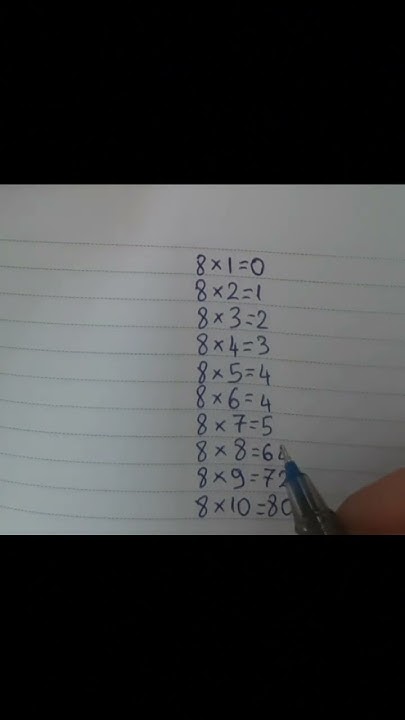 8×1=0
8×2=1
8×3=2
8×4=3
8×5=4
8×6=4
8×7=5
8×8=64
8×9=72
8×10=80